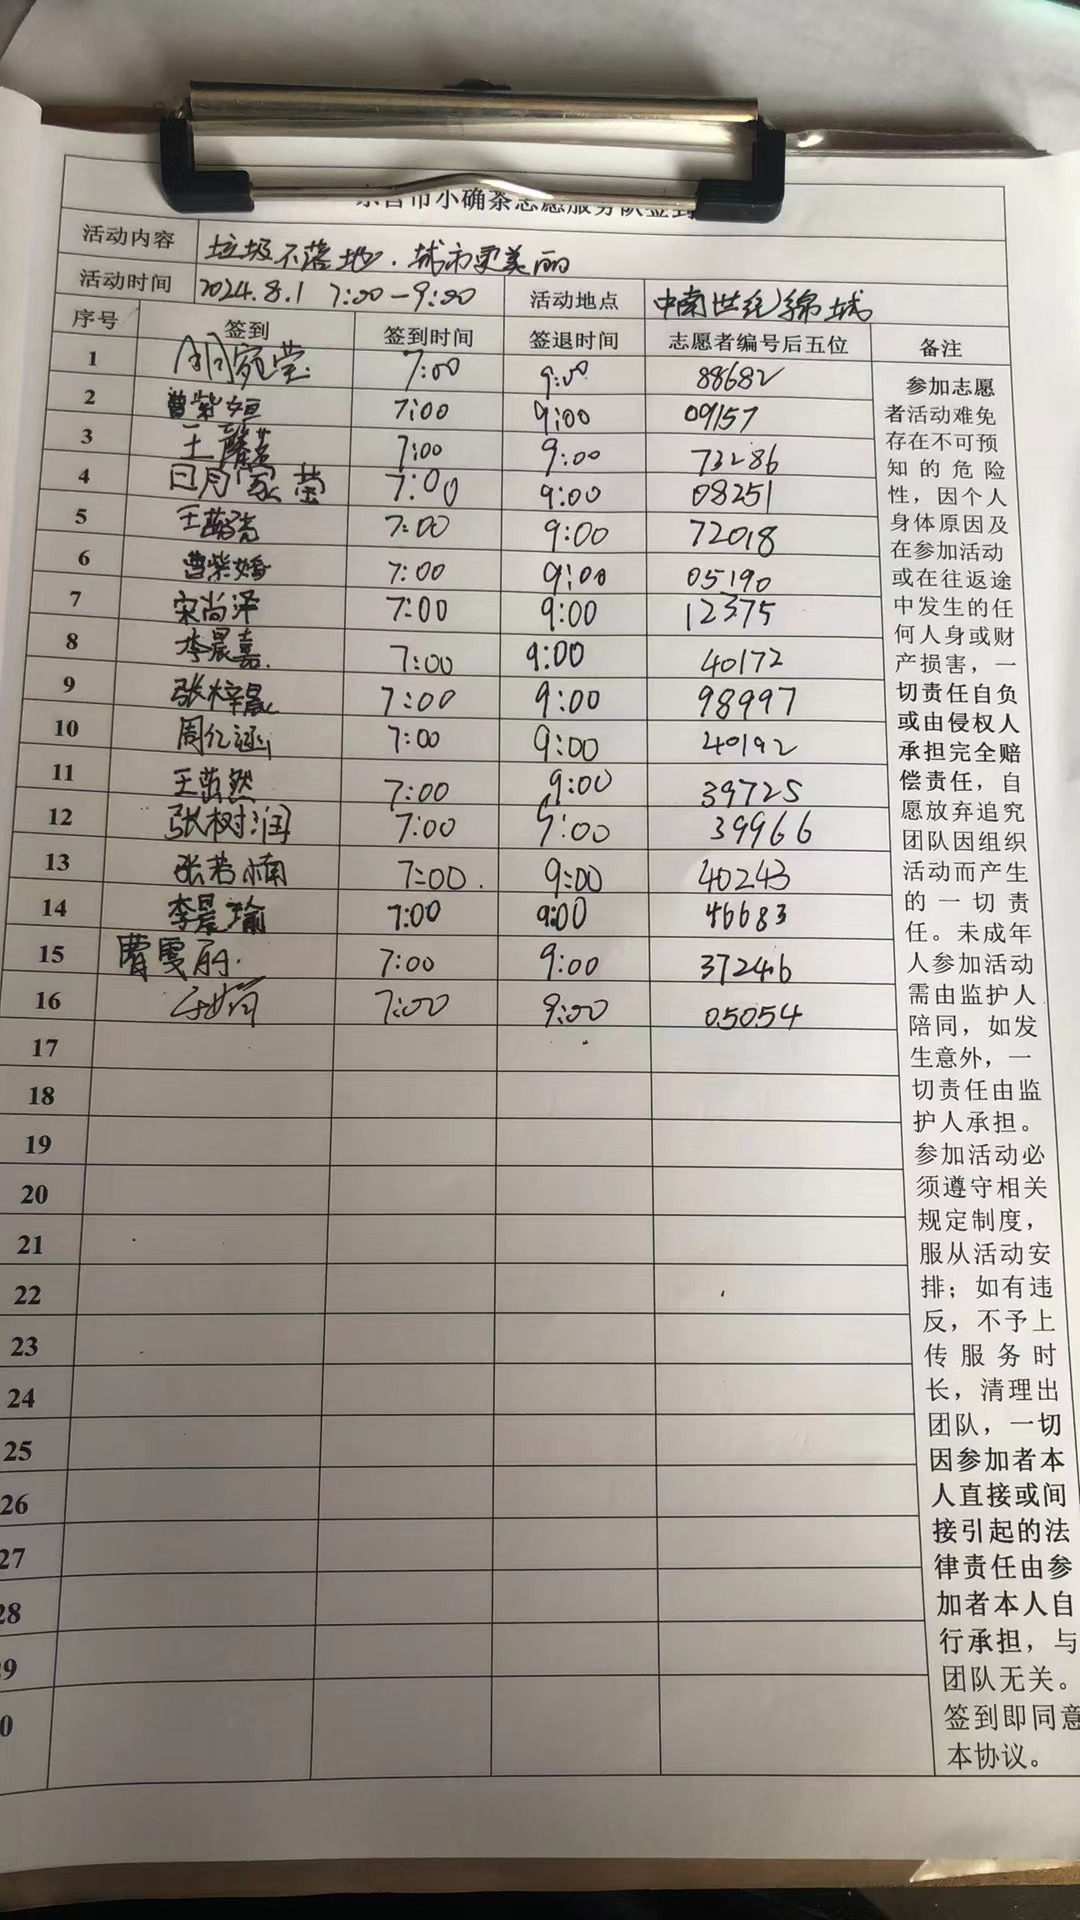 东营市小确茶志愿服务队签到
活动内容 垃圾不落地.城市更美丽
活动时间 2024.8.1 7:00-9:00 活动地点 中南世纪锦城
序号 签到 签到时间 签退时间 志愿者编号后五位 备注
1 宛莹 7:00 9:00 88682
2 曹紫姮 7:00 9:00 09157
3 王 7:00 9:00 73286
4 明家莹 7:00 9:00 08251
5 王 7:00 9:00 72018
6 曹紫 7:00 9:00 05190
7 宋尚泽 7:00 9:00 12375
8 李晨嘉 7:00 9:00 40172
9 张梓晨 7:00 9:00 98997
10 周亿涵 7:00 9:00 40192
11 王茁然 7:00 9:00 39725
12 张树润 7:00 9:00 39966
13 张若楠 7:00 9:00 40243
14 李晨瑜 7:00 9:00 46683
15 曹雯 7:00 9:00 37246
16 7:00 9:00 05054
17
18
19
20
21
22
23
24
25
26
27
28
29
0
参加志愿
者活动难免
存在不可预
知的危险
性，因个人
身体原因及
在参加活动
或在往返途
中发生的任
何人身或财
产损害，一
切责任自负
或由侵权人
承担完全赔
偿责任，自
愿放弃追究
团队因组织
活动而产生
的一切责
任。未成年
人参加活动
需由监护人
陪同，如发
生意外，一
切责任由监
护人承担。
参加活动必
须遵守相关
规定制度，
服从活动安
排；如有违
反，不予上
传服务时
长，清理出
团队，一切
因参加者本
人直接或间
接引起的法
律责任由参
加者本人自
行承担，与
团队无关。
签到即同意
本协议。